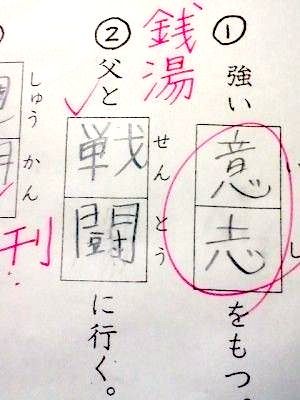 ① 強い意志をもつ。
いし
② 父と戦闘に行く。
せんとう
銭湯
しゅうかん
刊